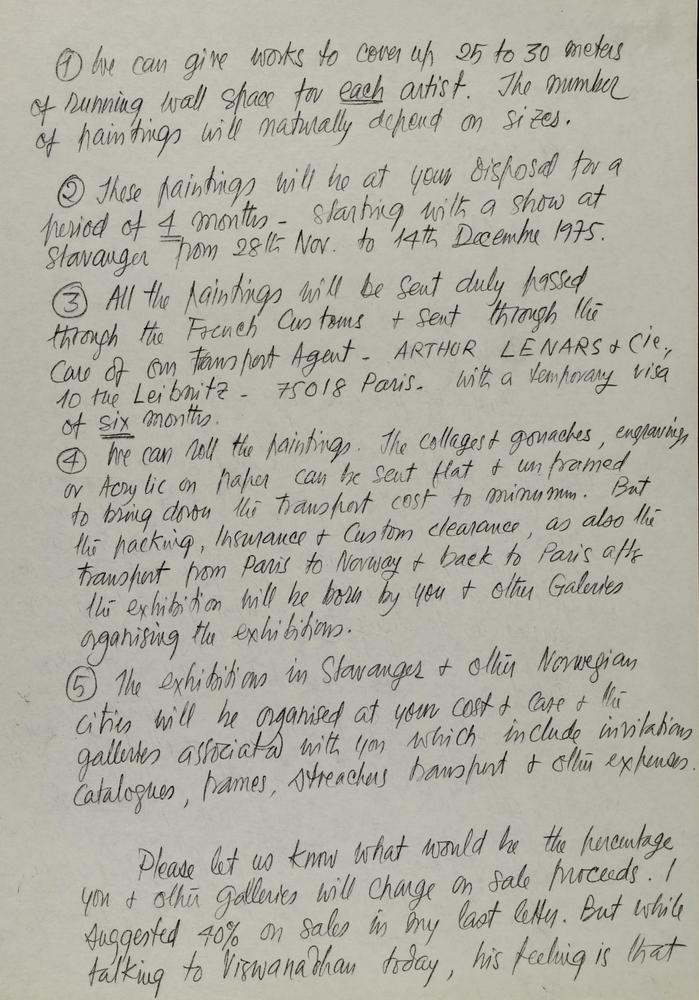 ① We can give works to cover up 25 to 30 meters
of running wall space for each artist. The number
of paintings will naturally depend on sizes.
② These paintings will be at your disposal for a
period of 4 months - starting with a show at
Stavanger from 28th Nov. to 14th Decembre 1975.
③ All the paintings will be sent duly passed
through the French Customs & sent through the
Care of our Transport Agent - ARTHUR LENARS & Cie.,
10 rue Leibnitz - 75018 Paris. with a temporary visa
of six months.
④ We can roll the paintings. The collages & gouaches, engravings
or Acrylic on paper can be sent flat & unframed
to bring down the transport cost to minimum. But
the packing, Insurance & Custom clearance, as also the
transport from Paris to Norway & back to Paris after
the exhibition will be born by you & other Galeries
organising the exhibitions.
⑤ The exhibitions in Stavanger & other Norwegian
cities will be organised at your cost & care & the
galleries associated with you which include invitations
Catalogues, frames, streachers transport & other expenses.
Please let us know what would be the percentage
you & other galleries will charge on sale proceeds. I
suggested 40% on sales in my last letter. But while
talking to Viswanadhan today, his feeling is that